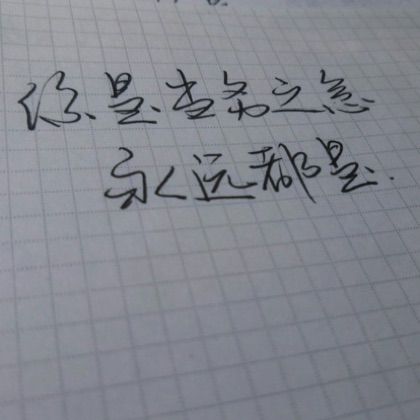 你是当务之急
永远都是.